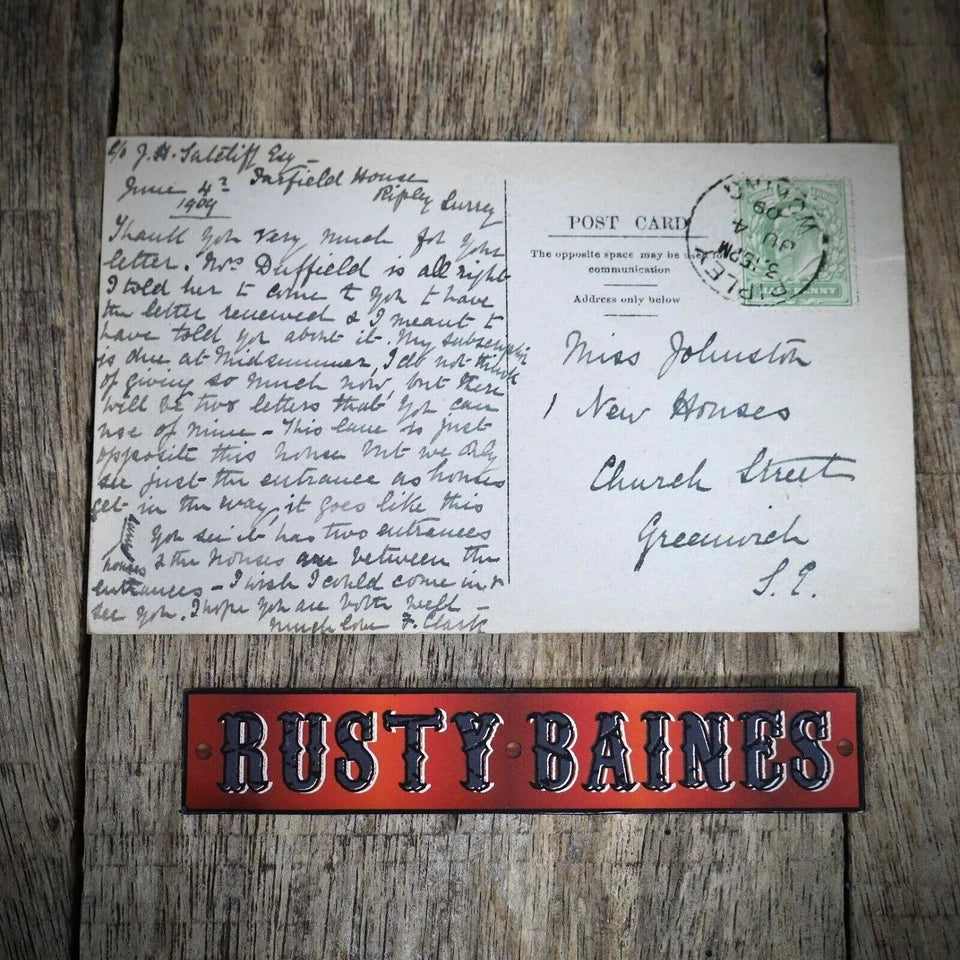 c/o J. H. Sutcliff Esq –
Fairfield House
June 4th
Ripley Surrey
1909
Thank you very much for your
letter. Mrs Duffield is all right
I told her to come to you to have
the letter renewed & I meant to
have told you about it. My subscription
is due at Midsummer, I do not think
of giving so much now, but there
will be two letters that you can
use of mine – This lane is just
opposite this house but we only
see just the entrance as houses
get in the way, it goes like this
You see it has two entrances
houses & the houses are between the
entrances – I wish I could come in &
see you. I hope you are both well –
much love F. Clark
POST CARD
The opposite space may be used for
communication
Address only below
RIPLEY
3.15PM
JU 4
09
WOKING
HALFPENNY
Miss Johnston
1 New Houses
Church Street
Greenwich
S.E.
RUSTY BAINES